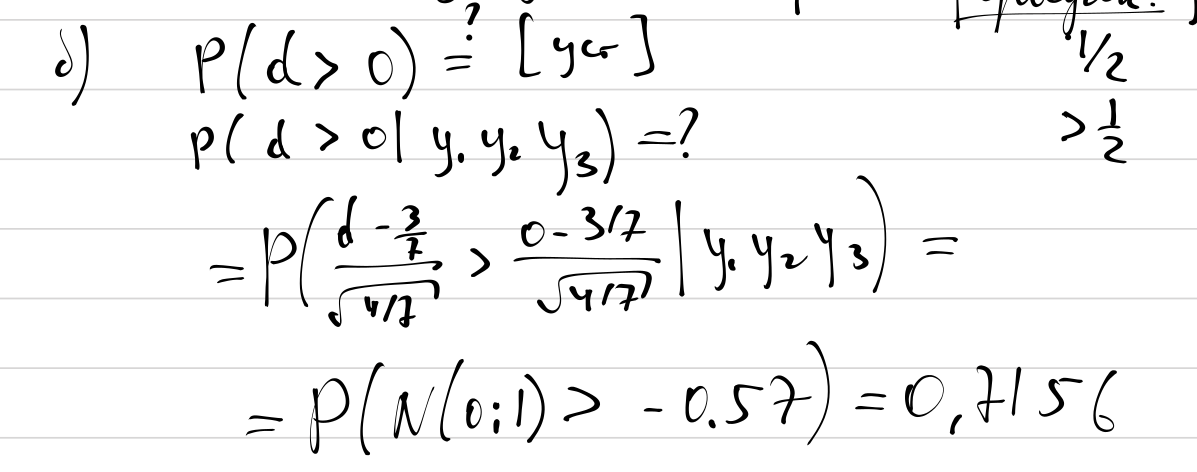 δ) P(d > 0) =? [yсг] 1/2
P(d > 0 | y₁ y₂ y₃) =? > 1/2
= P( (d - 3/7)/√(4/7) > (0 - 3/7)/√(4/7) | y₁ y₂ y₃ ) =
= P(N(0;1) > -0.57) = 0,7156